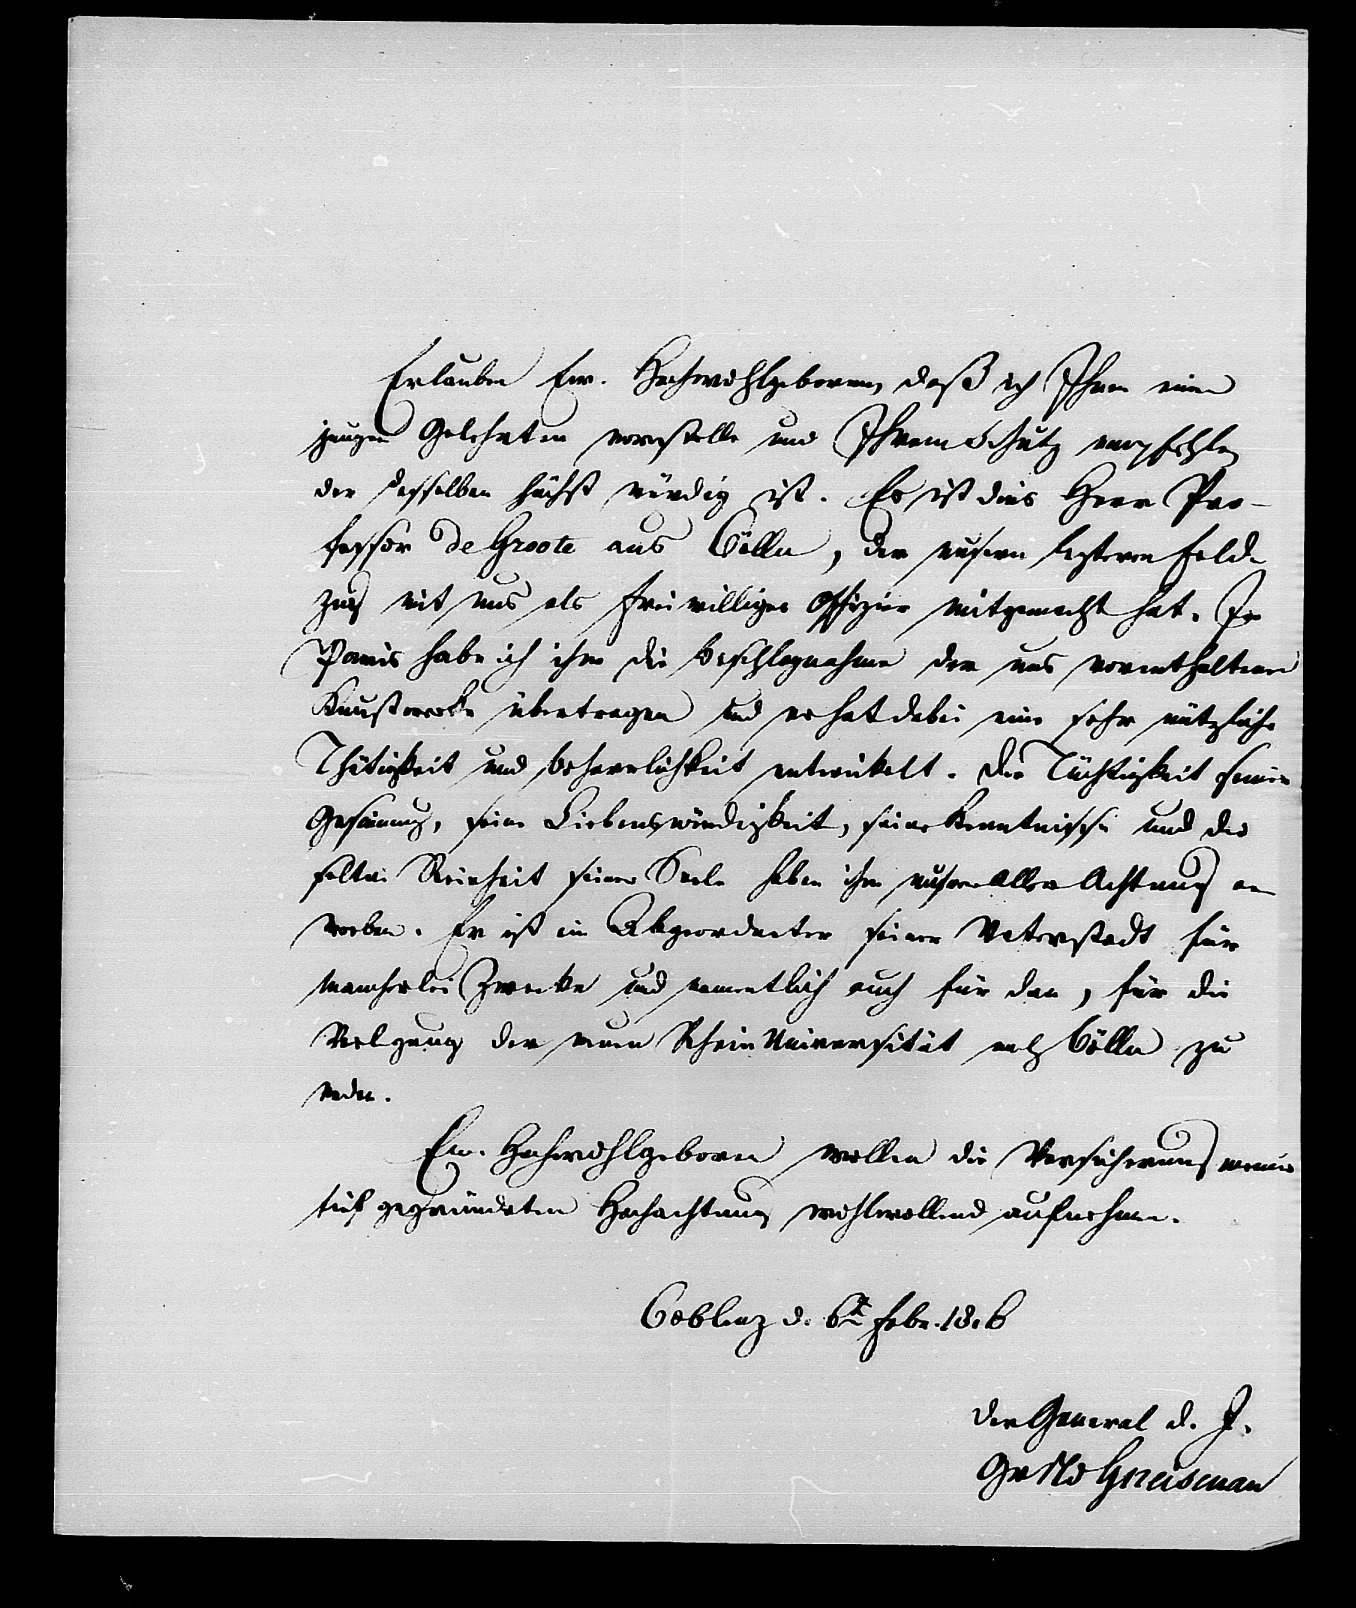 Erlauben Ew. Hochwohlgeboren, daß ich Ihnen einen
jungen Gelehrten vorstelle und Ihrem Schutz empfehle,
der desselben höchst würdig ist. Es ist dies Herr Pro-
fessor de Groote aus Cölln, der unsern lezteren Feld-
zug mit uns als freiwilliger Offizier mitgemacht hat. In
Paris habe ich ihm die Beschlagnahme der uns vorenthaltenen
Kunstwerke übertragen und er hat dabei eine sehr nützliche
Thätigkeit und Beharrlichkeit entwickelt. Die Tüchtigkeit seiner
Gesinnung, seine Liebenswürdigkeit, seine Kenntnisse und die
seltne Reinheit seiner Seele haben ihm unser Aller Achtung er
worben. Er ist ein Abgeordneter seiner Vaterstadt für
mancherlei Zwecke und namentlich auch für den, für die
Verlegung der neuen Rhein Universität nach Cölln zu
reden.
Ew. Hochwohlgeboren wollen die Versicherung meiner
tief gegründeten Hochachtung wohlwollend aufnehmen.
Coblenz d. 6t Febr. 1816
Der General d. I.
Gr N v Gneisenau